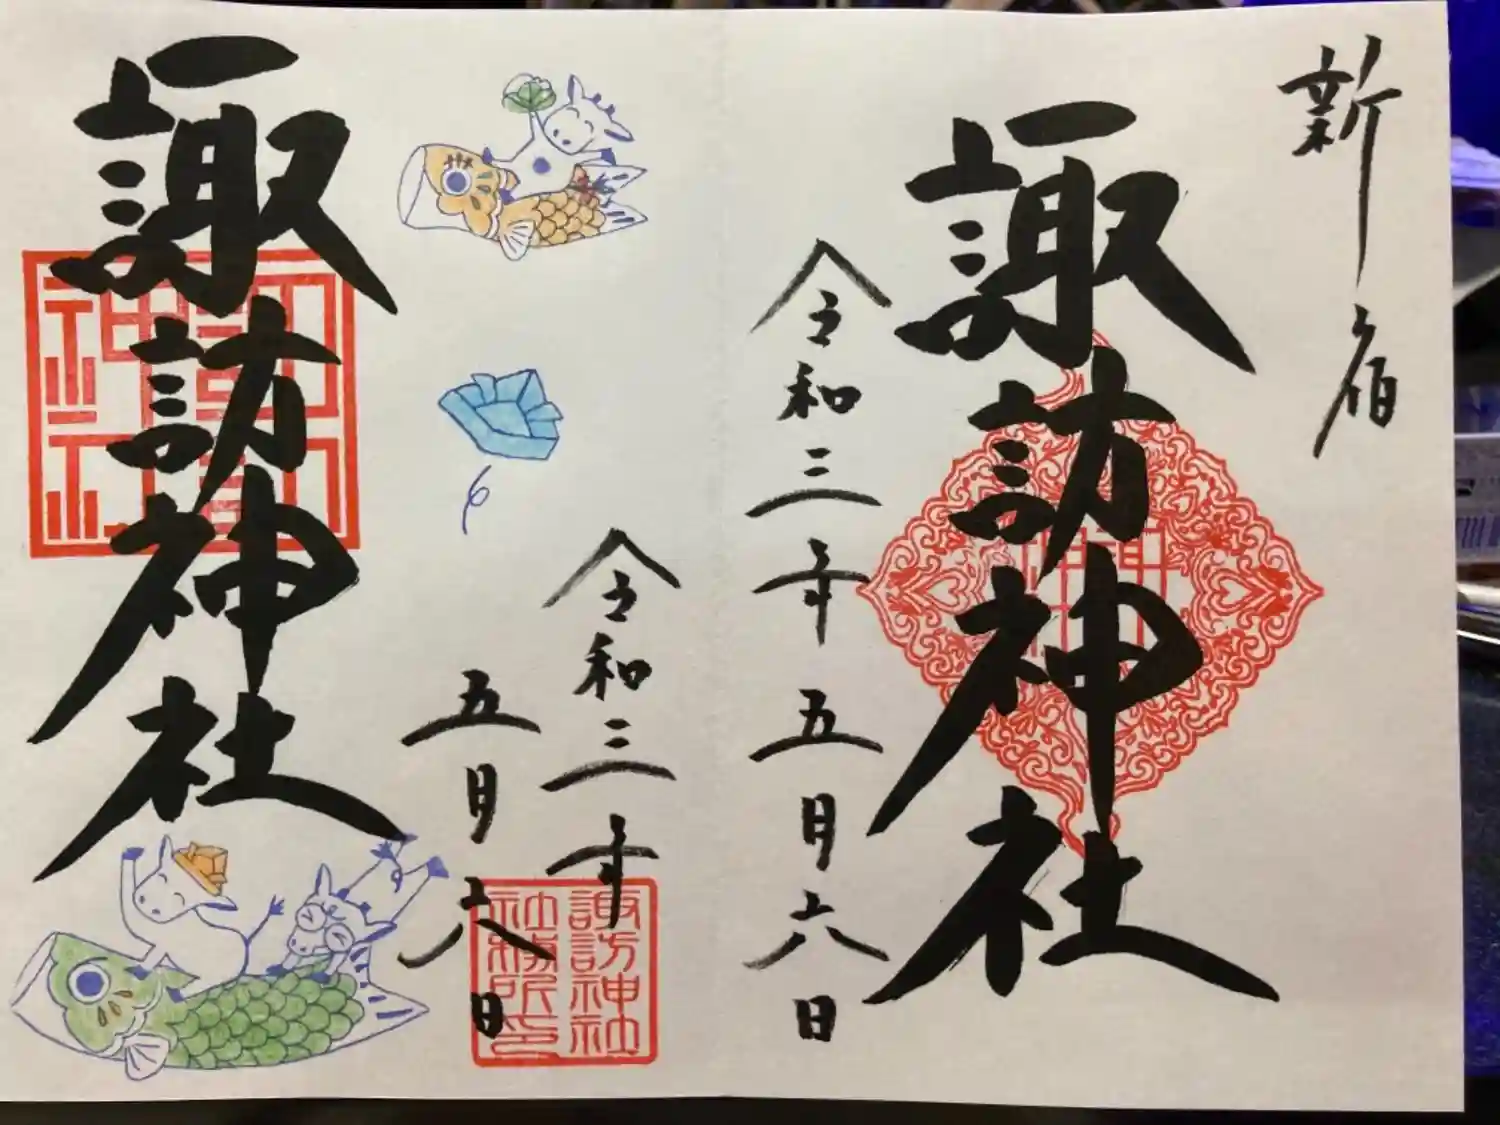 新宿
諏訪神社
令和三年五月六日
令和三年
五月六日
諏訪神社
諏訪神社
社務所印